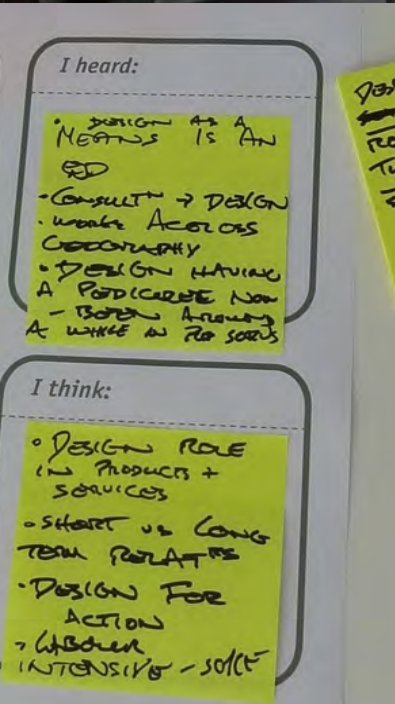 I heard:
• DESIGN AS A
MEANS IS AN
• CONSULTN → DESIGN
• WORKS ACROSS
GEOGRAPHY
• DESIGN HAVING
A PEDIGREE NOW
- BEEN AROUND
A WHILE IN
I think:
• DESIGN ROLE
IN PRODUCTS +
SERVICES
• SHORT VS LONG
TERM
• DESIGN FOR
ACTION
INTENSIVE -